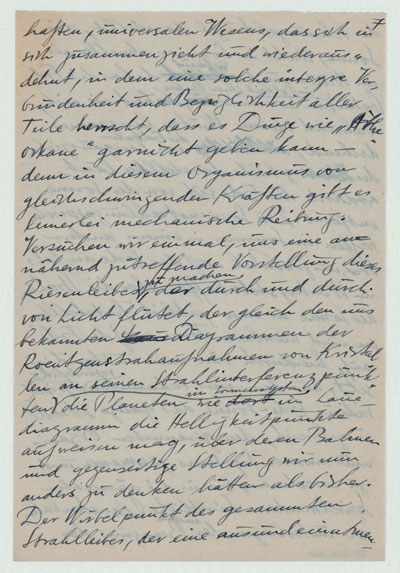 7
haften, universalen Wesens, das sich in
sich zusammenzieht und wiederaus„
dehnt, in dem eine solche integre Ver
bundenheit und Bezüglichkeit aller
Teile herrscht, dass es Dinge wie „Äthe
orkane“ garnicht geben kann —
denn in diesem Organismus von
gleichschwingenden Kräften gibt es
keinerlei mechanische Reibung.
Versuchen wir einmal, uns eine an
nähernd zutreffende Vorstellung dieses
Riesenleibes zu machen, der durch und durch
von Licht flutet, der gleich den uns
bekannten Diagrammen der
Roentgenstrahlaufnahmen von Kristal
len an seinen Strahlinterferenzpunk
ten die Planeten wie dort im Laue
diagramm die Helligkeitpunkte
aufweisen mag, über deren Bahnen
und gegenseitige Stellung wir nun
anders zu denken hätten als bisher.
Der Wirbelpunkt des gesammten
Strahlleibes, der eine ausundeinatmen